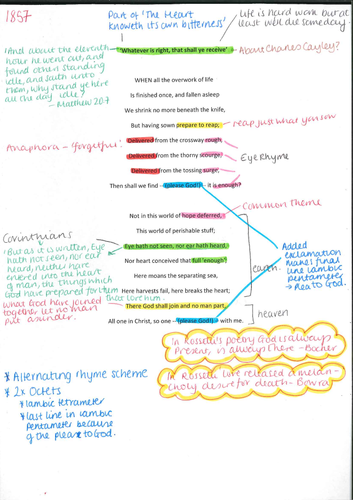 1857
Part of 'The Heart
knoweth its own bitterness'
life is hard work but at
least we'll die someday
'Whatever is right, that shall ye receive'
About Charles Cayley?
'And about the eleventh
hour he went out, and
found others standing
idle, and saith unto
them, why stand ye here
all the day idle?'
- Matthew 20:7
WHEN all the overwork of life
Is finished once, and fallen asleep
We shrink no more beneath the knife,
But having sown prepare to reap;
reap just what you sow
Anaphora - 'forgetful'
Delivered from the crossway rough,
Delivered from the thorny scourge,
Delivered from the tossing surge,
Eye Rhyme
Then shall we find - (please God!) - it is enough?
Not in this world of hope deferred,
Common theme
This world of perishable stuff;
Eye hath not seen, nor ear hath heard,
Nor heart conceived that full 'enough':
Here moans the separating sea,
Here harvests fail, here breaks the heart;
earth
There God shall join and no man part,
All one in Christ, so one - (please God!) - with me.
heaven
Corinthians
'But as it is written, Eye
hath not seen, nor ear
heard, neither have
entered into the heart
of man, the things which
God have prepared for them
that love him.
what God have joined
together let no man
put asunder.
Added
exclamation
makes final
line iambic
pentameter
→ Plea to God.
In Rossetti's poetry God is always
Present, is always there - Bocher
In Rossetti 'love released a melan-
choly desire for death - Bowra
* Alternating rhyme scheme
* 2x Octets
* Iambic tetrameter
* last line in iambic
pentameter because
of the plea to God.